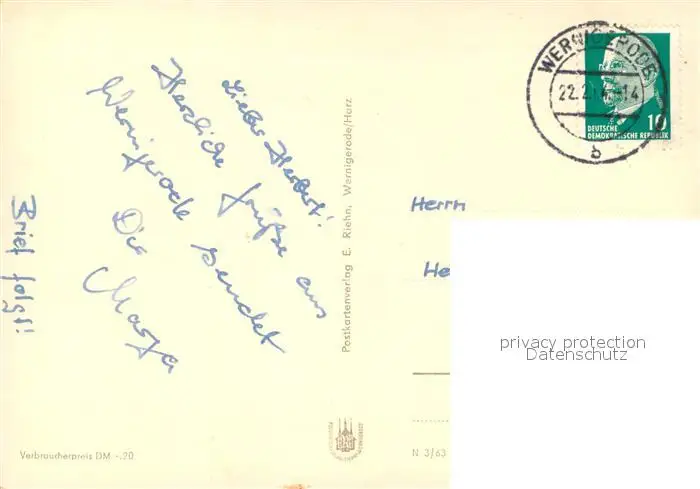 Lieber Herbert!
Herzliche Grüße aus
Wernigerode sendet
Dir
Marga
Brief folgt!
Verbraucherpreis DM -.20
Postkartenverlag E. Riehn, Wernigerode/Harz
WERNIGERODE
22.2.
-14
b
10
DEUTSCHE
DEMOKRATISCHE REPUBLIK
Herrn
He
privacy protection
Datenschutz
N 3/63